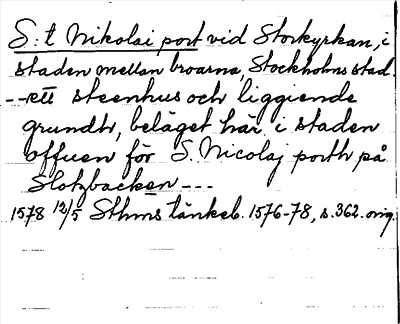 S:t Nikolai port vid Storkyrkan, i
staden mellan broarna, Stockholms stad.
--ett steenhus och liggiende
grundh, beläget här i staden
offuen för S. Nicolaj porth på
Slotzbacken ---
1578 12/5 Sthms tänkeb. 1576-78, s. 362. orig.